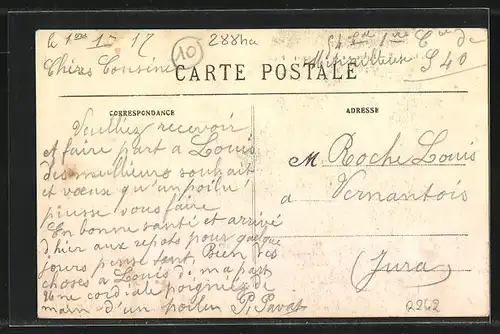 le 1er 1 17
10
288ha
Cie de
Mitrailleuse S 40
Chers Cousins
CARTE POSTALE
CORRESPONDANCE
ADRESSE
Veuilliez recevoir
et faire part a Louis
des meilleurs souhait
et vœux qu'un poilu
puisse vous faire
En bonne santé et arrivé
d'hier aux repots pour quelque
jours pense tant. Bien des
choses a Louis de ma part
une cordiale poignée de
main d'un poilu P. Pavat
M. Roche Louis
a Vernantois
(Jura)